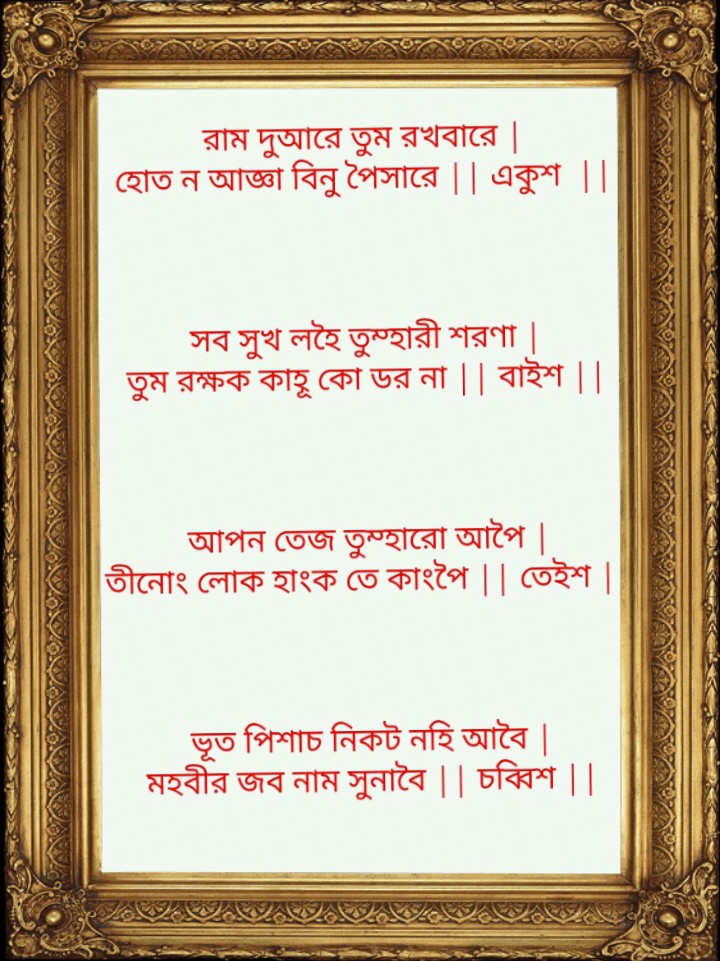 রাম দুআরে তুম রখবারে |
হোত ন আজ্ঞা বিনু পৈসারে || একুশ ||
সব সুখ লহৈ তুম্হারী শরণা |
তুম রক্ষক কাহূ কো ডর না || বাইশ ||
আপন তেজ তুম্হারো আপৈ |
তীনোং লোক হাংক তে কাংপৈ || তেইশ |
ভূত পিশাচ নিকট নহি আবৈ |
মহবীর জব নাম সুনাবৈ || চব্বিশ ||